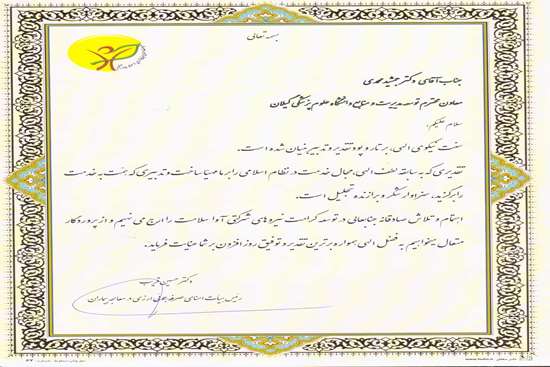 بسمه تعالی
جناب آقای دکتر جمشید محمدی
معاون محترم توسعه مدیریت و منابع دانشگاه علوم پزشکی گیلان
سلام علیکم؛
سنت نیکوی الهی، بر تار و پود تقدیر و تدبیر بنیان شده است.
تقدیری که به سابقه لطف الهی، مجال خدمت در نظام اسلامی را برما مهیا ساخت و تدبیری که همت به خدمت
را برگزیند، سزاوار شکر و برازنده تجلیل است.
اهتمام و تلاش صادقانه جنابعالی در توسعه کرامت نیروهای شرکتی آوا سلامت را ارج می نهیم و از پروردگار
متعال می‌خواهیم به فضل الهی همواره برترین تقدیر و توفیق روزافزون بر شما عنایت فرماید.
دکتر حسین
رئیس هیات امنای صرفه جویی ارزی در معالجه بیماران